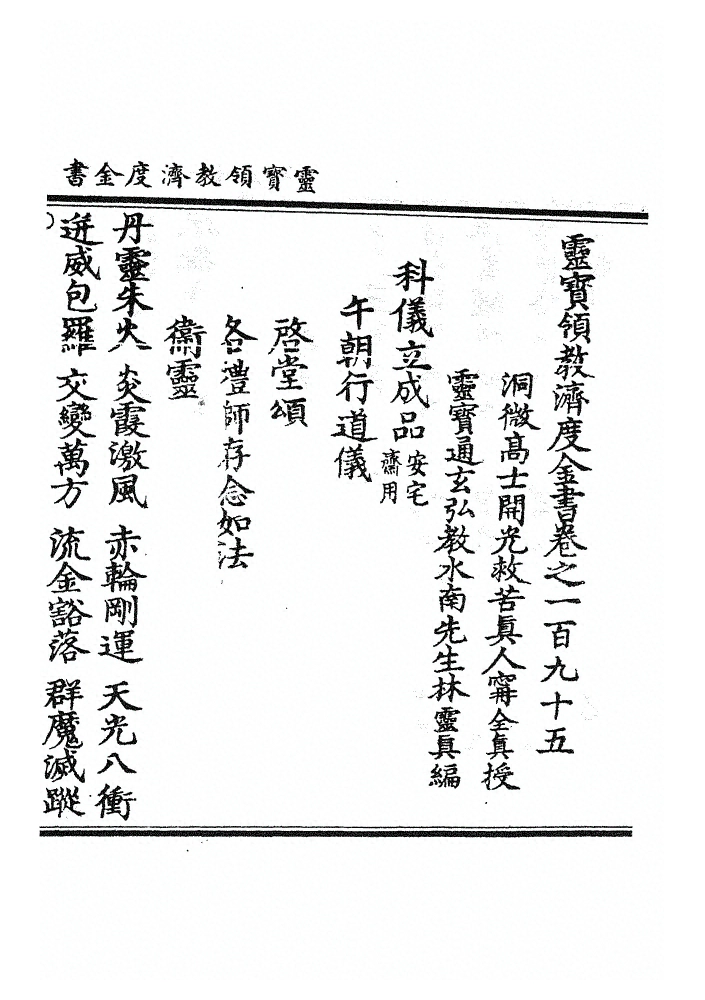 靈寶領教濟度金書
靈寶領教濟度金書卷之一百九十五
洞微高士開光救苦眞人甯全眞授
靈寶通玄弘教水南先生林靈眞編
科儀立成品 安宅齋用
午朝行道儀
啓堂頌
各禮師存念如法
衞靈
丹靈朱火 炎霞激風 赤輪剛運 天光八衝
迸威包羅 交變萬方 流金豁落 群魔滅蹤